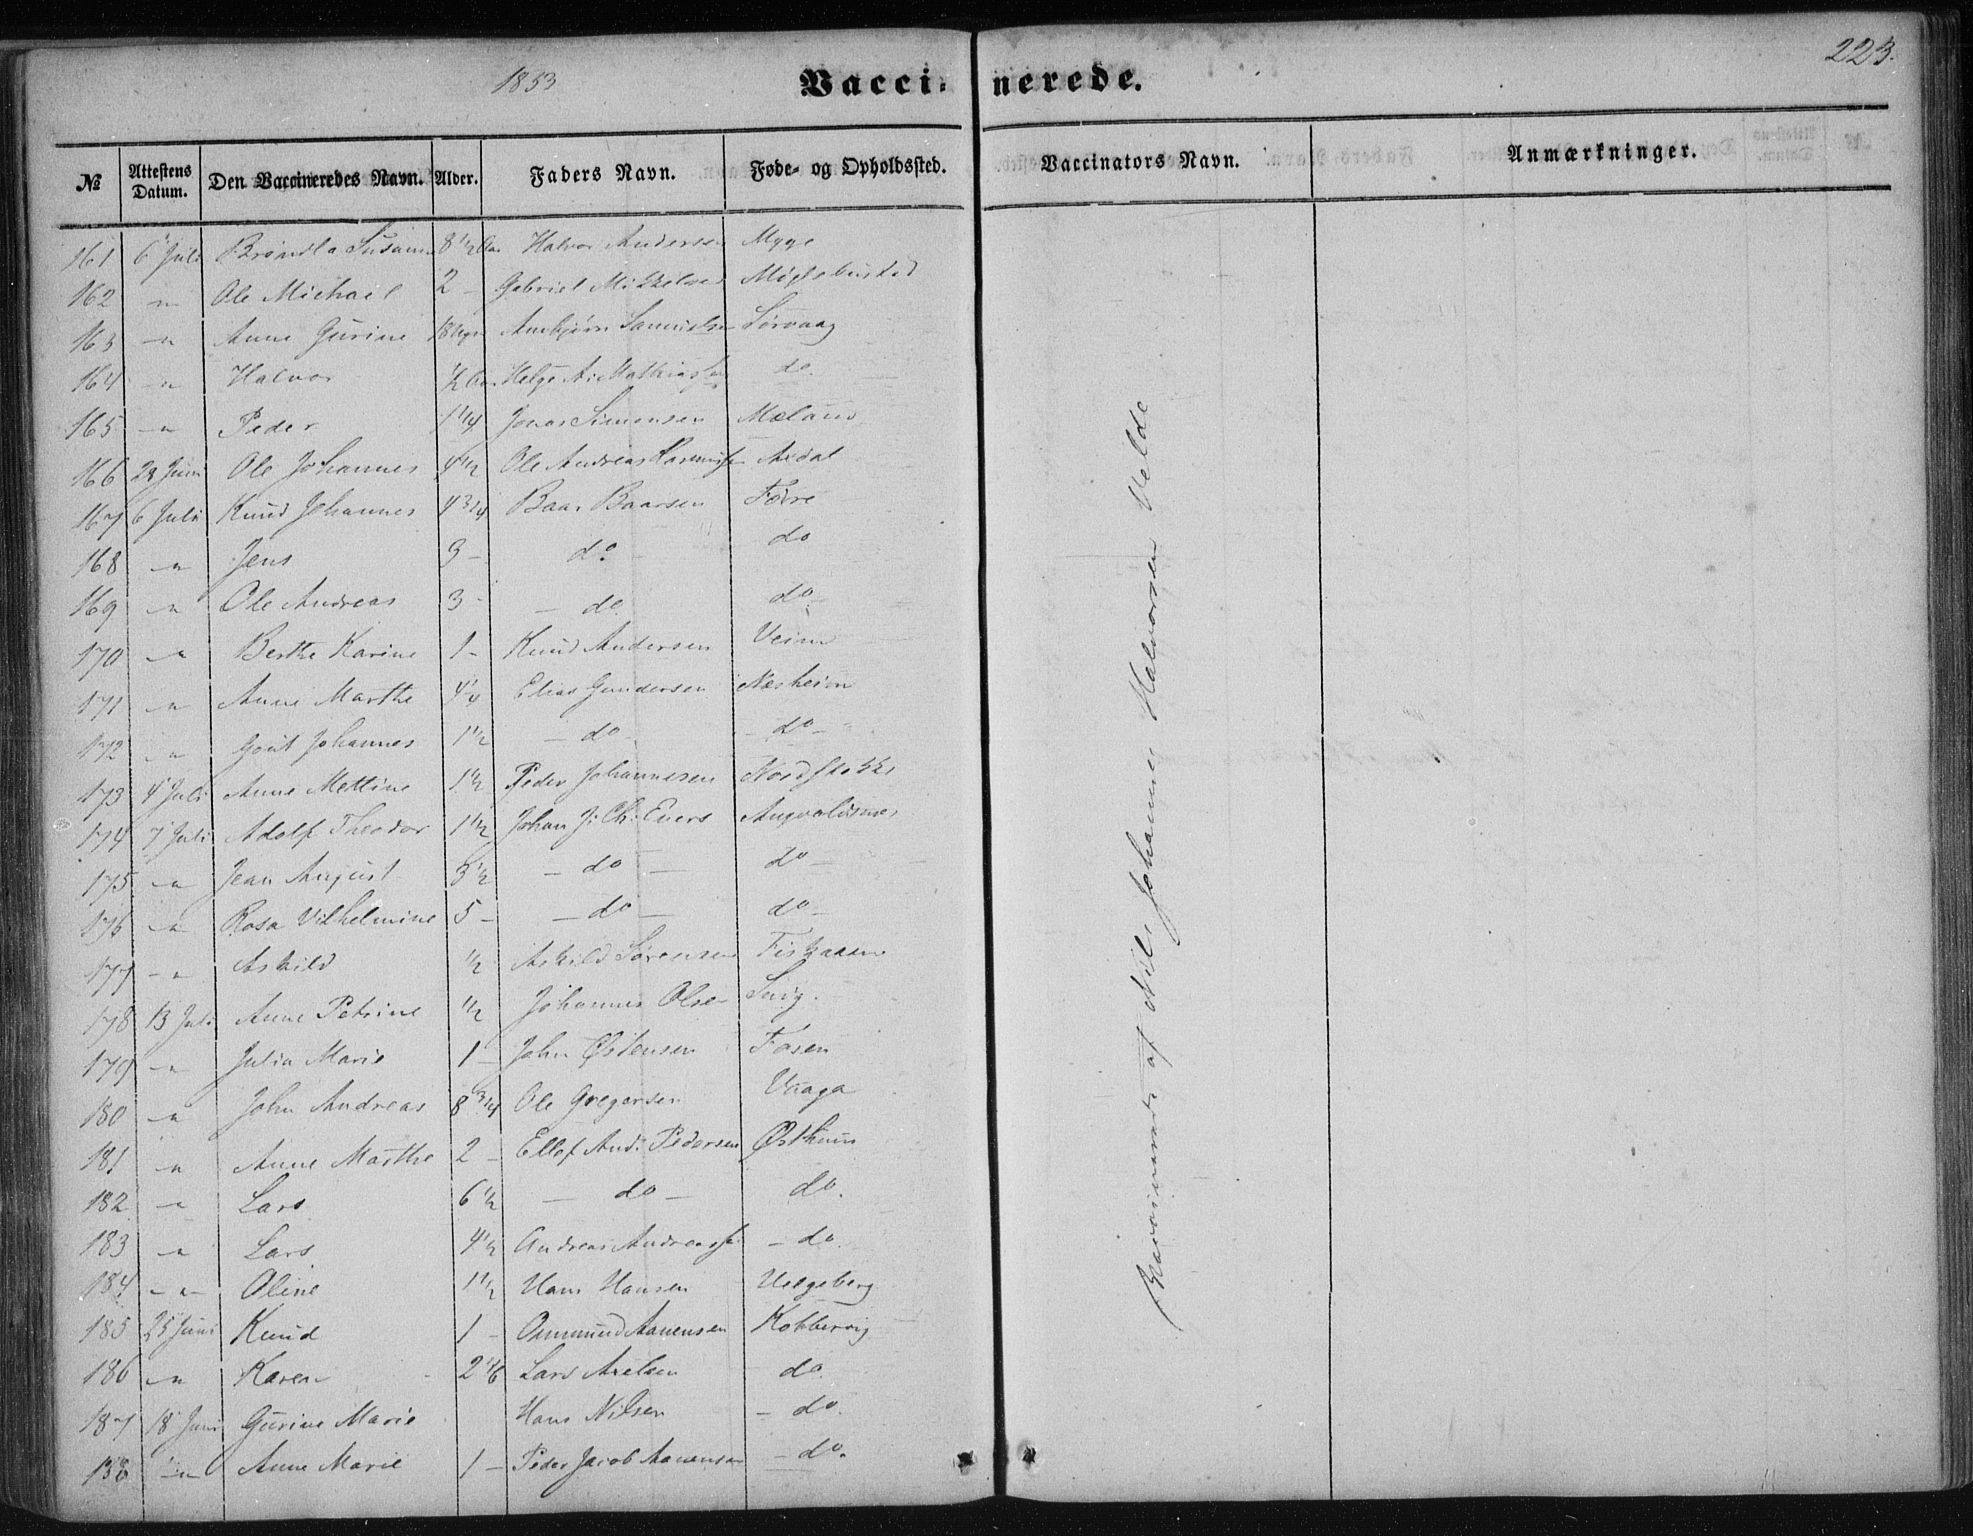 223.
1853
Vaccinerede.
№ Attestens Datum. Den Vaccineredes Navn. Alder. Faders Navn. Føde- og Opholdssted. Vaccinators Navn. Anmærkninger.
161 6 Juli 8 1/2 Aar Halvor Andersen Myge
162 " Ole Michail 2 - Gabriel Mikkelsen
163 " Anne Gurine Sørvaag
164 " Halvor 1/2 Aar Helge A. Mathiassen do
165 " Peder 1 1/4 Jonas Simonsen
166 Juni Ole Johannes 4 1/2 Ole Andreas Rasmussen
167 6 Juli Knud Johannes 4 3/4 Baar Baarsen Førre
168 " Jens 3 - do do
169 " Ole Andreas 3 - do do
170 " Berthe Karine 1 - Knud Andersen
171 " Anne Marthe 4 1/4 Elias Gundersen Nesheim
172 " Johannes 1 1/2 - do - - do -
173 4 Juli Anne Mettine 1 1/2 Peder Johannesen Nordstokke
174 7 Juli Adolf Theodor 1 1/2 Johan J. Ch. Evers Augvaldsnes
175 " Jean August 3 1/2 - do - do -
176 " Rosa Vilhelmine 5 - - do - do -
177 " Askild 1/2 Askild Sørensen Fiskaaen
178 13 Juli Anne Petrine 1/2 Johannes Olsen
179 " Julia Marie 1 - John Østensen Fosen
180 " John Andreas 8 3/4 Ole Gregersen Vaaga
181 " Anne Marthe 2 - Ellef And. Pedersen Østhuus
182 " Lars 6 1/2 - do - do.
183 " Lars 4 1/2 Andreas Andreassen - do.
184 " Oline 1 1/2 Hans Hansen
185 25 Juni Knud 1 - Osmund Aanensen Kobbervig
186 " Karen 2 Lars do.
187 18 Juni Gurine Marie Hans Nilsen - do.
188 " Anne Marie 1 - Peder Jacob Aanensen - do.
af Nils Johannes Halvorsen Velde